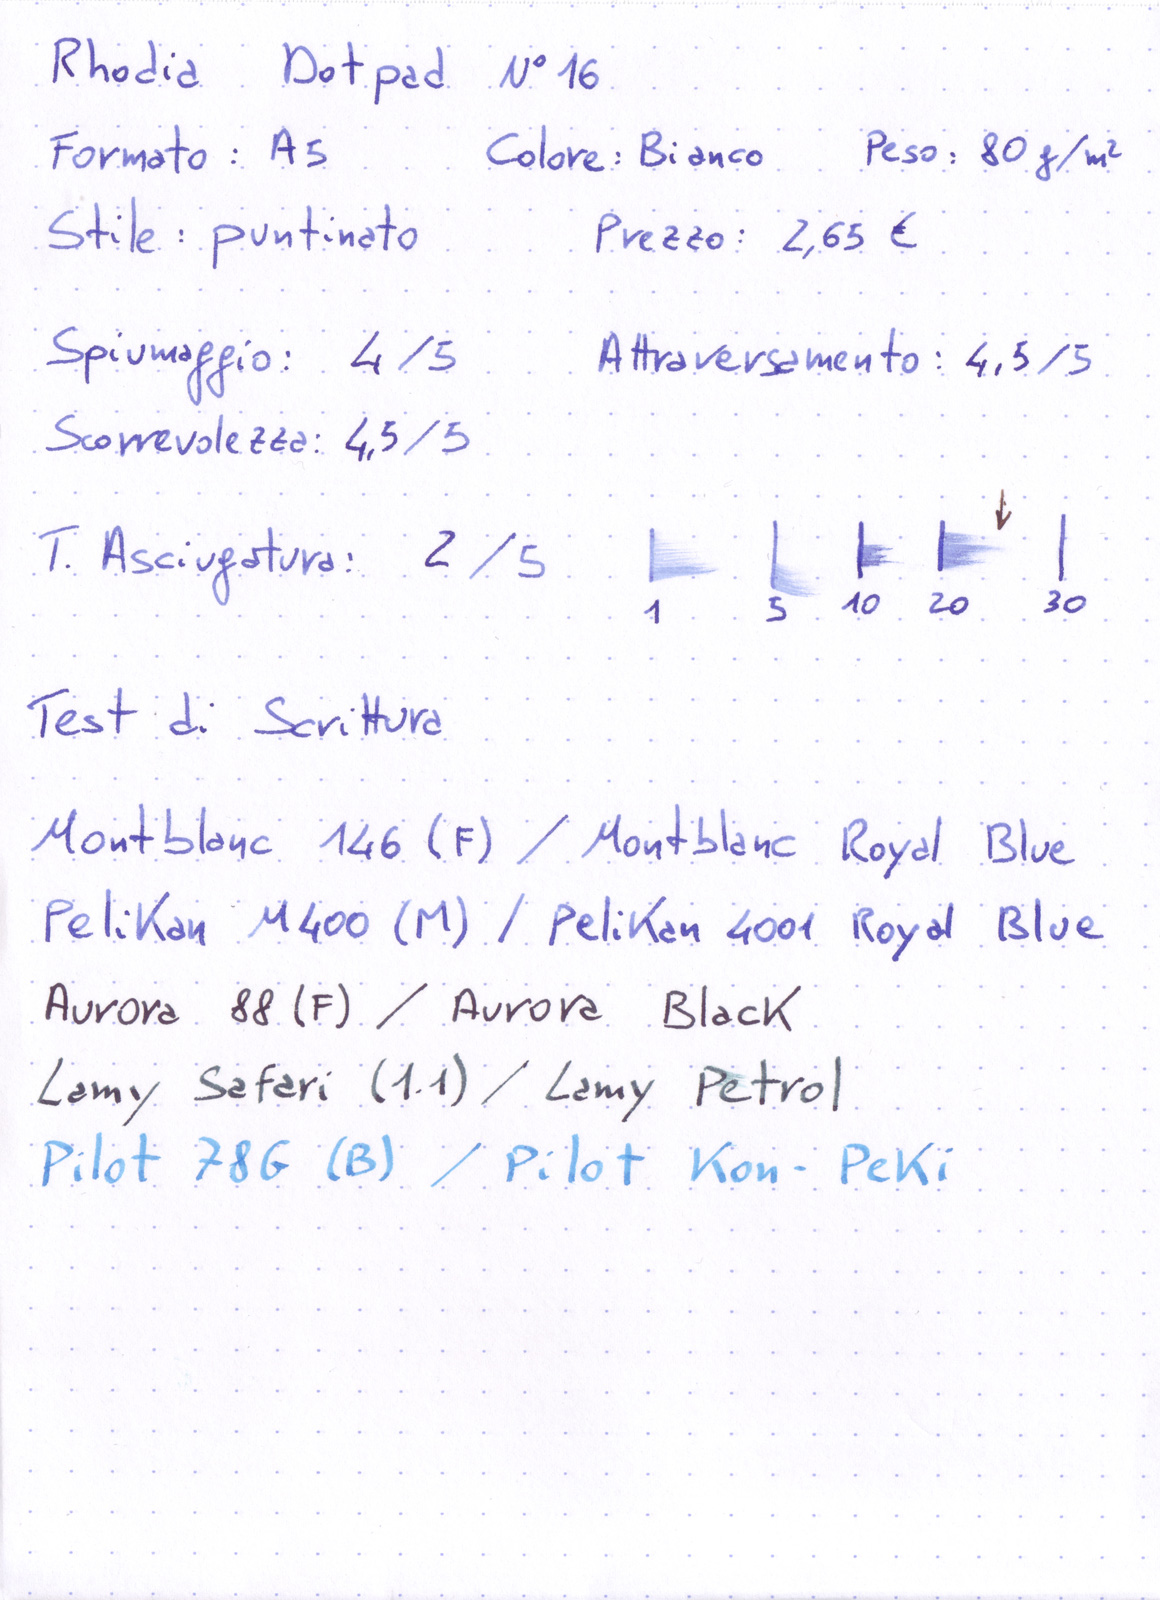 Rhodia Dotpad N° 16
Formato: A5 Colore: Bianco Peso: 80 g/m²
Stile: puntinato Prezzo: 2,65 €
Spiumaggio: 4/5 Attraversamento: 4,5/5
Scorrevolezza: 4,5/5
T. Asciugatura: 2/5
1 5 10 20 30
Test di Scrittura
Montblanc 146 (F) / Montblanc Royal Blue
Pelikan M400 (M) / Pelikan 4001 Royal Blue
Aurora 88 (F) / Aurora Black
Lamy Safari (1.1) / Lamy Petrol
Pilot 78G (B) / Pilot Kon-Peki